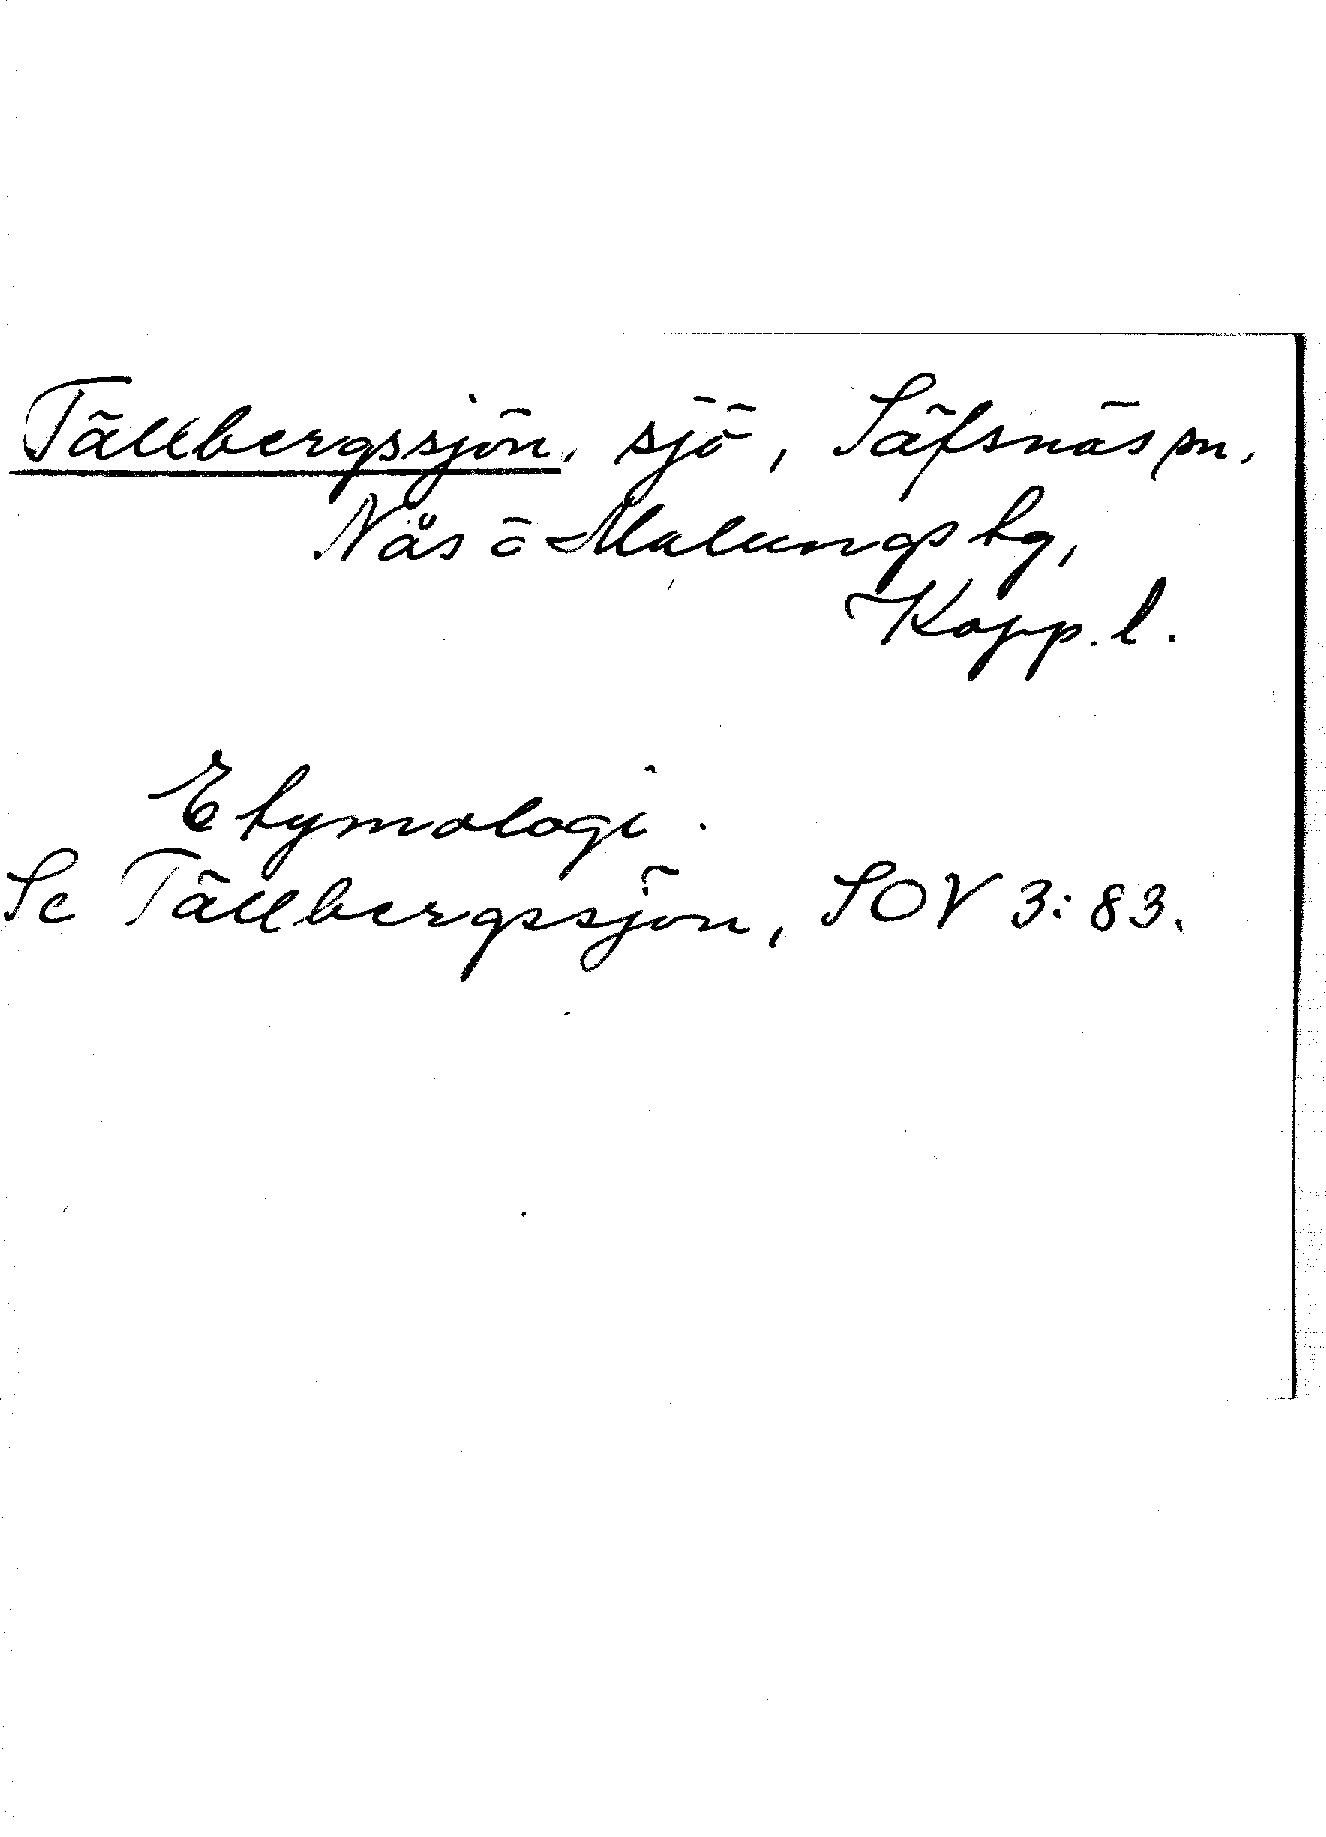 Tällbergssjön, sjö, Säfsnäs sn,
Nås o Malungs tg,
Kopp. l.
Etymologi.
Se Tällbergssjön, SOV 3: 83.